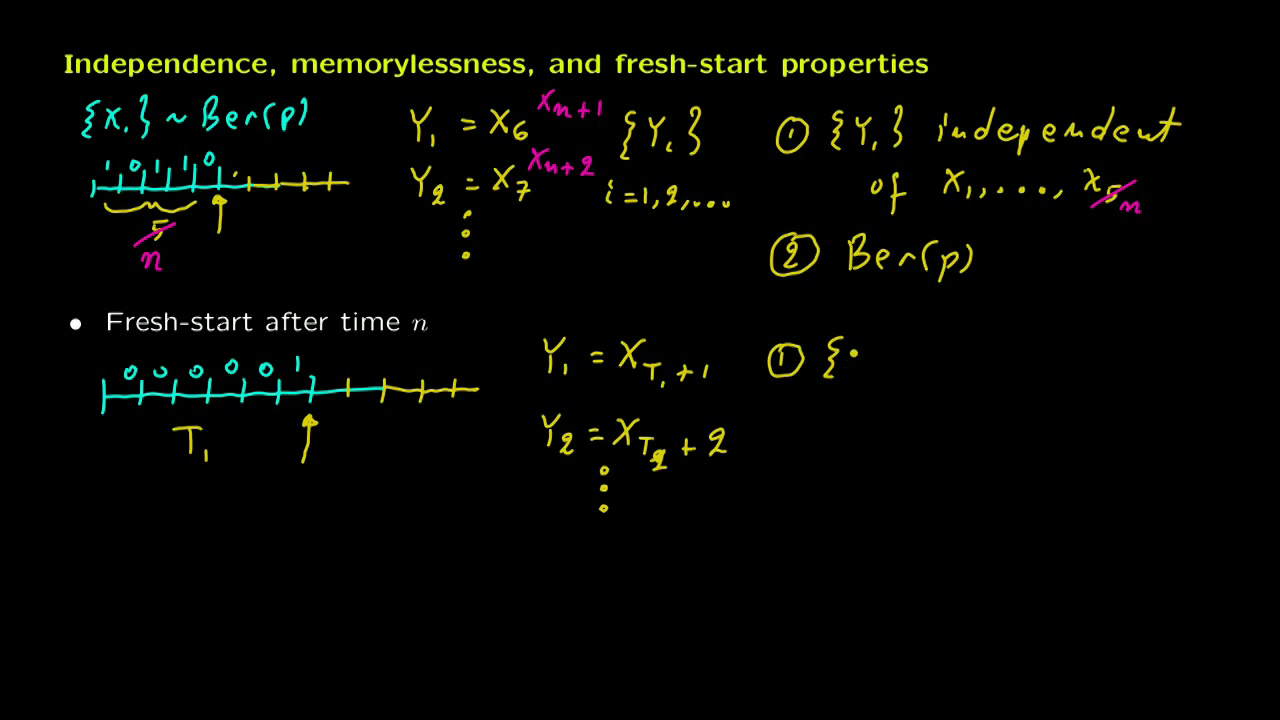 Independence, memorylessness, and fresh-start properties
{Xᵢ} ~ Ber(p)
1 0 1 1 0
5 n
Y₁ = X₆ Xₙ₊₁
Y₂ = X₇ Xₙ₊₂
⋮
{Yᵢ}
i = 1, 2, ...
① {Yᵢ} independent
of X₁, ..., X₅ n
② Ber(p)
• Fresh-start after time n
0 0 0 0 0 1
T₁
Y₁ = X_{T₁ + 1}
Y₂ = X_{T₂ + 2}
⋮
① {